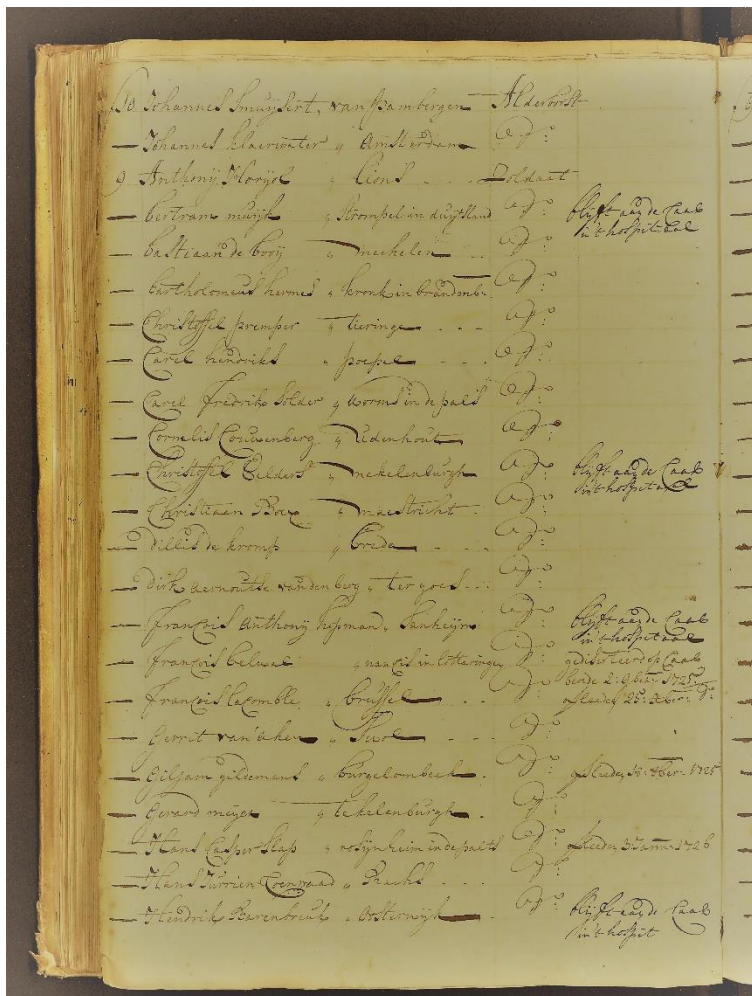 10 Johannes Smuijsert, van Bambergen Alderborst
— Johannes klaerwater " Amsterdam do:
9 Anthonij " Lions Zoldaat
— bertram muijk " Strompel in duijtsland do: blijft aan de Caab
in't hospitaal
— bastiaan de booij " mechelen do:
— bartholomeus hermes " in brandenb: do:
— Christoffel premper " tieringe do:
— Carel hendriks " poepel do:
— Carel fredrik Solder " worms in de pals do:
— Cornelis Couwenberg " udenhout do:
— Christoffel Gelders " mekelenburgh do: blijft aan de Caab
in't hospitaal
— Christiaan " maestricht do:
— Dillis de kromp " breda do:
— Dirk aernoutse vanden berg " ter goes do:
— françois Anthonij hosman " Sanheijm do: blijft aan de Caab
in't hospitaal
— françois " nancis in lotteringen do: op Caab
beide 2: 9ber: 1725
— françois lacomble " brussel do: overleeden 25: ber: do
— Gerrit van aken " do:
— Giljam gildemans " burgelombeek do: overleeden 18: ber: 1725
— Gerard meijer " tekelenburgh do:
— Hans Casper Slap " rosijnheim inde palts do: overleeden 31 Jann: 1726
— Hans Jurrien Coenraad " do:
— Hendrik " Oosterwijk do: blijft aan de Caab
in't hospit